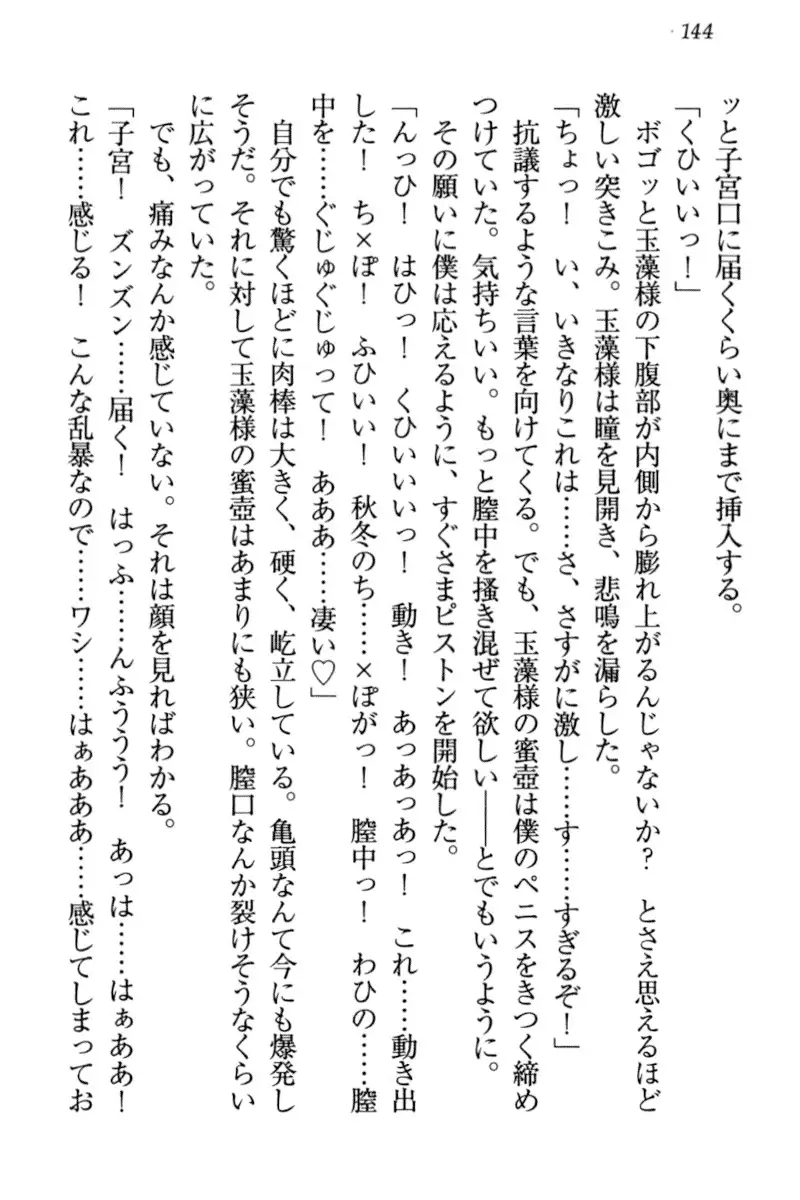 144
ッと子宮口に届くくらい奥にまで挿入する。
「くひいいっ！」
ボゴッと玉藻様の下腹部が内側から膨れ上がるんじゃないか？　とさえ思えるほど
激しい突きこみ。玉藻様は瞳を見開き、悲鳴を漏らした。
「ちょっ！　い、いきなりこれは……さ、さすがに激し……す……すぎるぞ！」
抗議するような言葉を向けてくる。でも、玉藻様の蜜壺は僕のペニスをきつく締め
つけていた。気持ちいい。もっと膣中を掻き混ぜて欲しい――とでもいうように。
その願いに僕は応えるように、すぐさまピストンを開始した。
「んっひ！　はひっ！　くひいいいっ！　動き！　あっあっあっ！　これ……動き出
した！　ち×ぽ！　ふひいい！　秋冬のち……×ぽがっ！　膣中っ！　わひの……膣
中を……ぐじゅぐじゅって！　あああ……凄い♡」
自分でも驚くほどに肉棒は大きく、硬く、屹立している。亀頭なんて今にも爆発し
そうだ。それに対して玉藻様の蜜壺はあまりにも狭い。膣口なんか裂けそうなくらい
に広がっていた。
でも、痛みなんか感じていない。それは顔を見ればわかる。
「子宮！　ズンズン……届く！　はっふ……んふううう！　あっは……はぁああ！
これ……感じる！　こんな乱暴なので……ワシ……はぁあああ……感じてしまってお